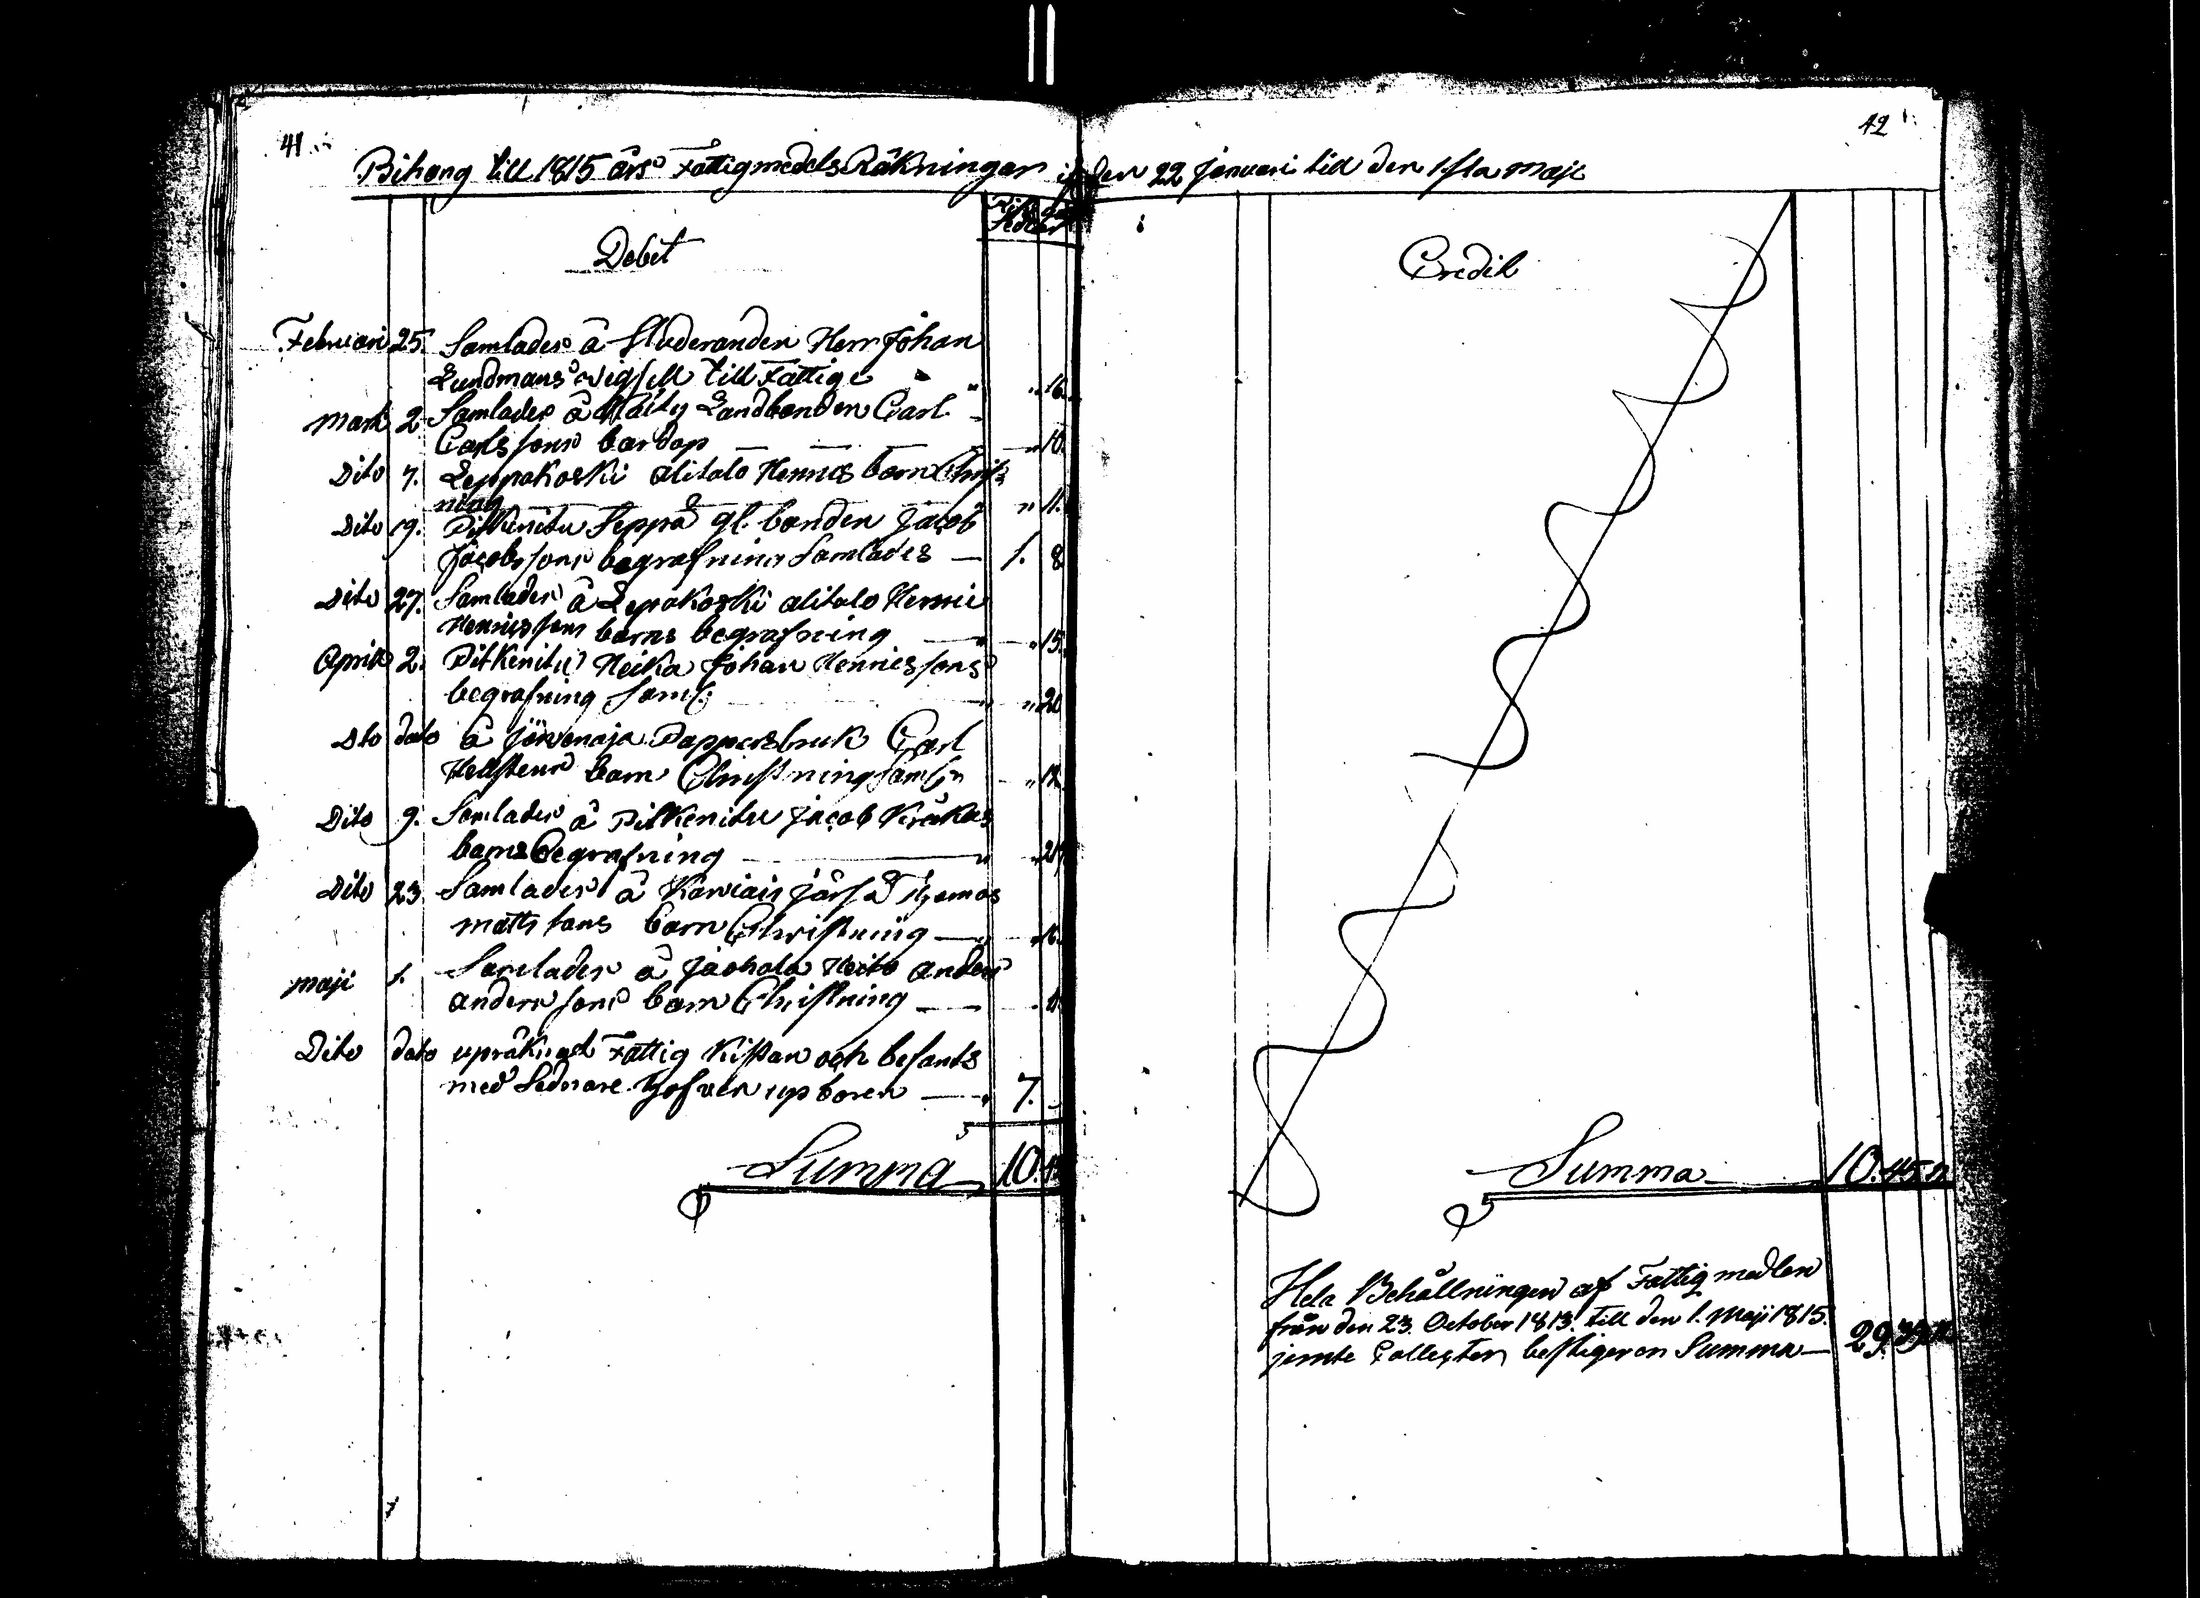 41
Bihang till 1815 års Fattigmedels Räkningar
Debit
Februari 25. Samlades â Studeranden Herr Johan
Lundmans vigsell till Fattige " " 16.
Mart 2 Samlades â Landbonden Carl
Carlssons bardop " 10.
Dito 7. Leppakoski alitalo Hennes barn Christ
ning " 11.
Dito 19. Pitkenitu Seppä gl. bonden Jacob
Jacobssons begrafning Samlades 1. 8
Dito 27. Samlades â Lepakoski alitalo Hennie
Henricssons barns begrafning " 15.
April 2. Pitkenitu Heika Johan Henricssons
begrafning Saml: " 20
Dto dato â Järvenoja Pappersbruk Carl
Hellstens barn Christning Saml:n " 12
Dito 9. Samlades â Pitkenitu Jacob Kräkas
barns Begrafning "
Dito 23. Samlades â
Matts sons barn Christning " 16.
Maji 1. Samlades â Jaohala Heito anders
anderssons barn Christning
Dito dato upräknad Fattig Kistan och befants
med Sednare upboren " 7. -
Summa 10.
42
den 22 Januari till den 1sta Maji
Credit
Summa 10. 45. "
Hela Behållningen af Fattig medlen
från den 23. October 1813. till den 1. Maji 1815.
jemte Collecten bestiger en Summa 29.